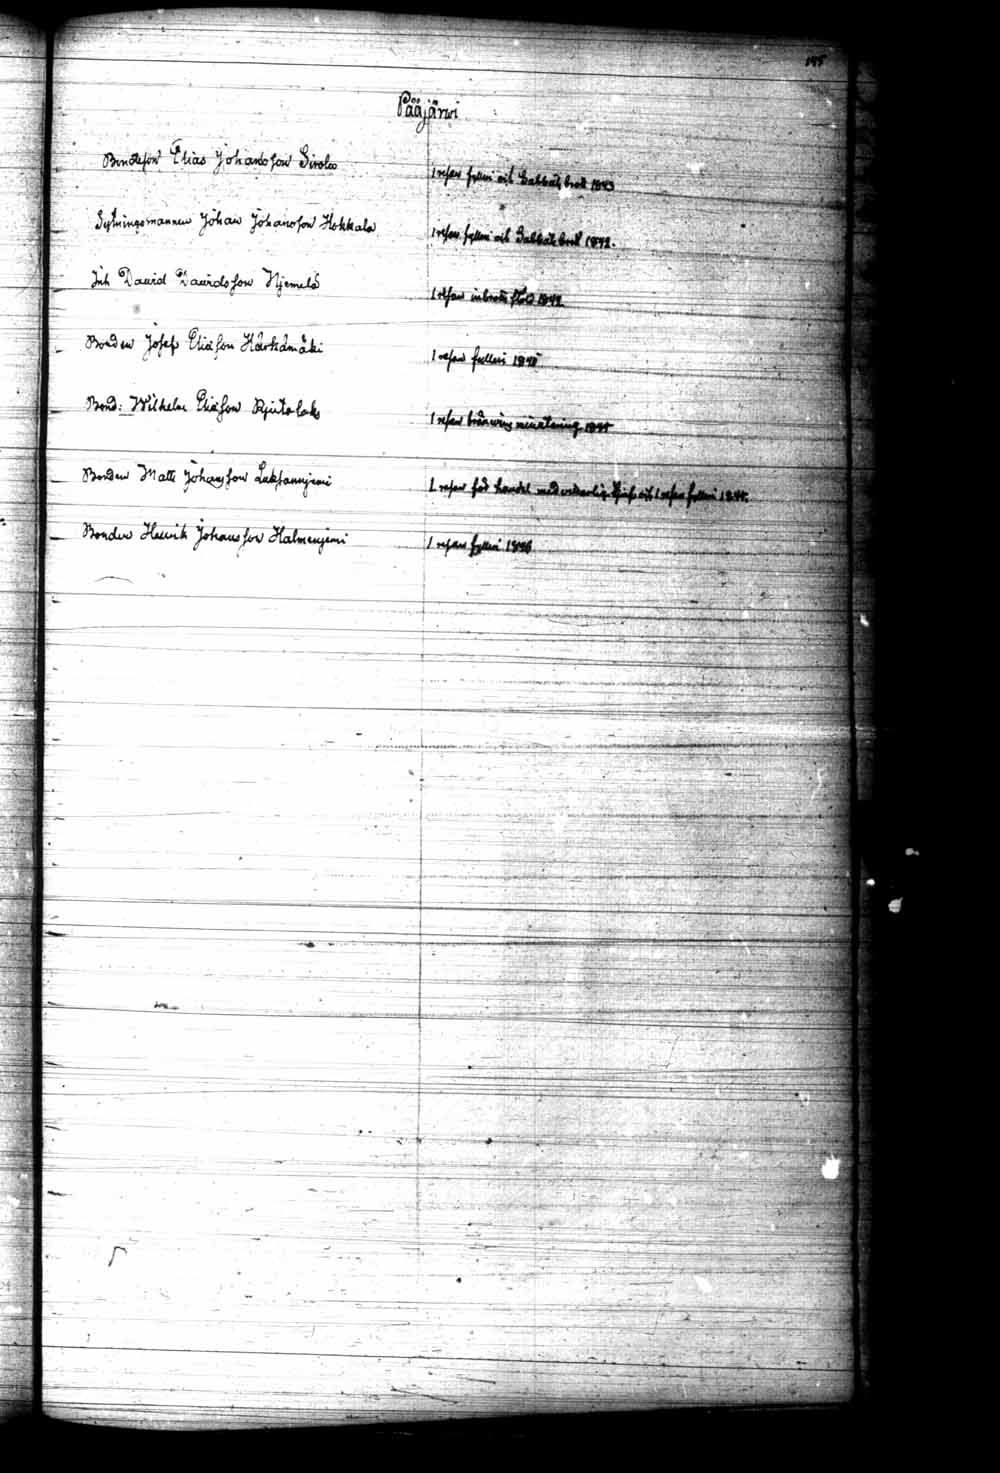 195
Pääjärwi
Bondeson Elias Johansson Sirola 1 resan fylleri och Sabbats brott 1843
Sytningsmannen Johan Johansson Hokkala 1 resan fylleri och Sabbats brott 1842.
Inh David Davidsson Njemelä 1 resan inbrotts stöld 1842
Bonden Josef Eliasson Härkämäki 1 resan fylleri 1845
Bond: Wilhelm Eliasson 1 resan bränwins 1845
Bonden Matts Johansson 1 resan handel med och 1 resan fylleri 1845.
Bonden Henrik Johansson Halmenjemi 1 resan fylleri 1846